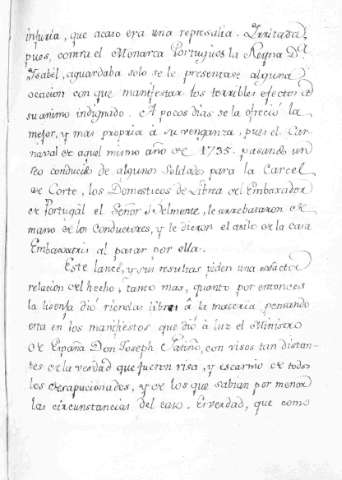 injuria, que acaso era una represalia. Irritada,
pues, contra el Monarca Portugues la Reyna D.ª
Isabel, aguardaba solo se le presentase alguna
ocacion con que manifestar los terribles efectos de
su animo indignado. A pocos dias se la ofreció la
mejor, y mas propria à su venganza, pues el Car-
naval de aquel mismo año de 1735. pasando un
reo conducido de algunos Soldados para la Carcel
de Corte, los Domesticos de Librea del Embaxador
de Portugal el Señor Belmente, le arrebataron de
mano de los Conductores, y le dieron el asilo de la casa
Embaxatriz al pasar por ella.
Este lance, y sus resultas piden una exacta
relacion del hecho, tanto mas, quanto por entonces
la lisonja dió riendas libres à la materia pensando
esta en los manifiestos que dió à luz el Ministro
de España Don Joseph Patiño, con visos tan distan-
tes de la verdad que fueron risa, y escarnio de todos
los desapacionados, y de los que sabian por menor
las circunstancias del caso. Es verdad, que como